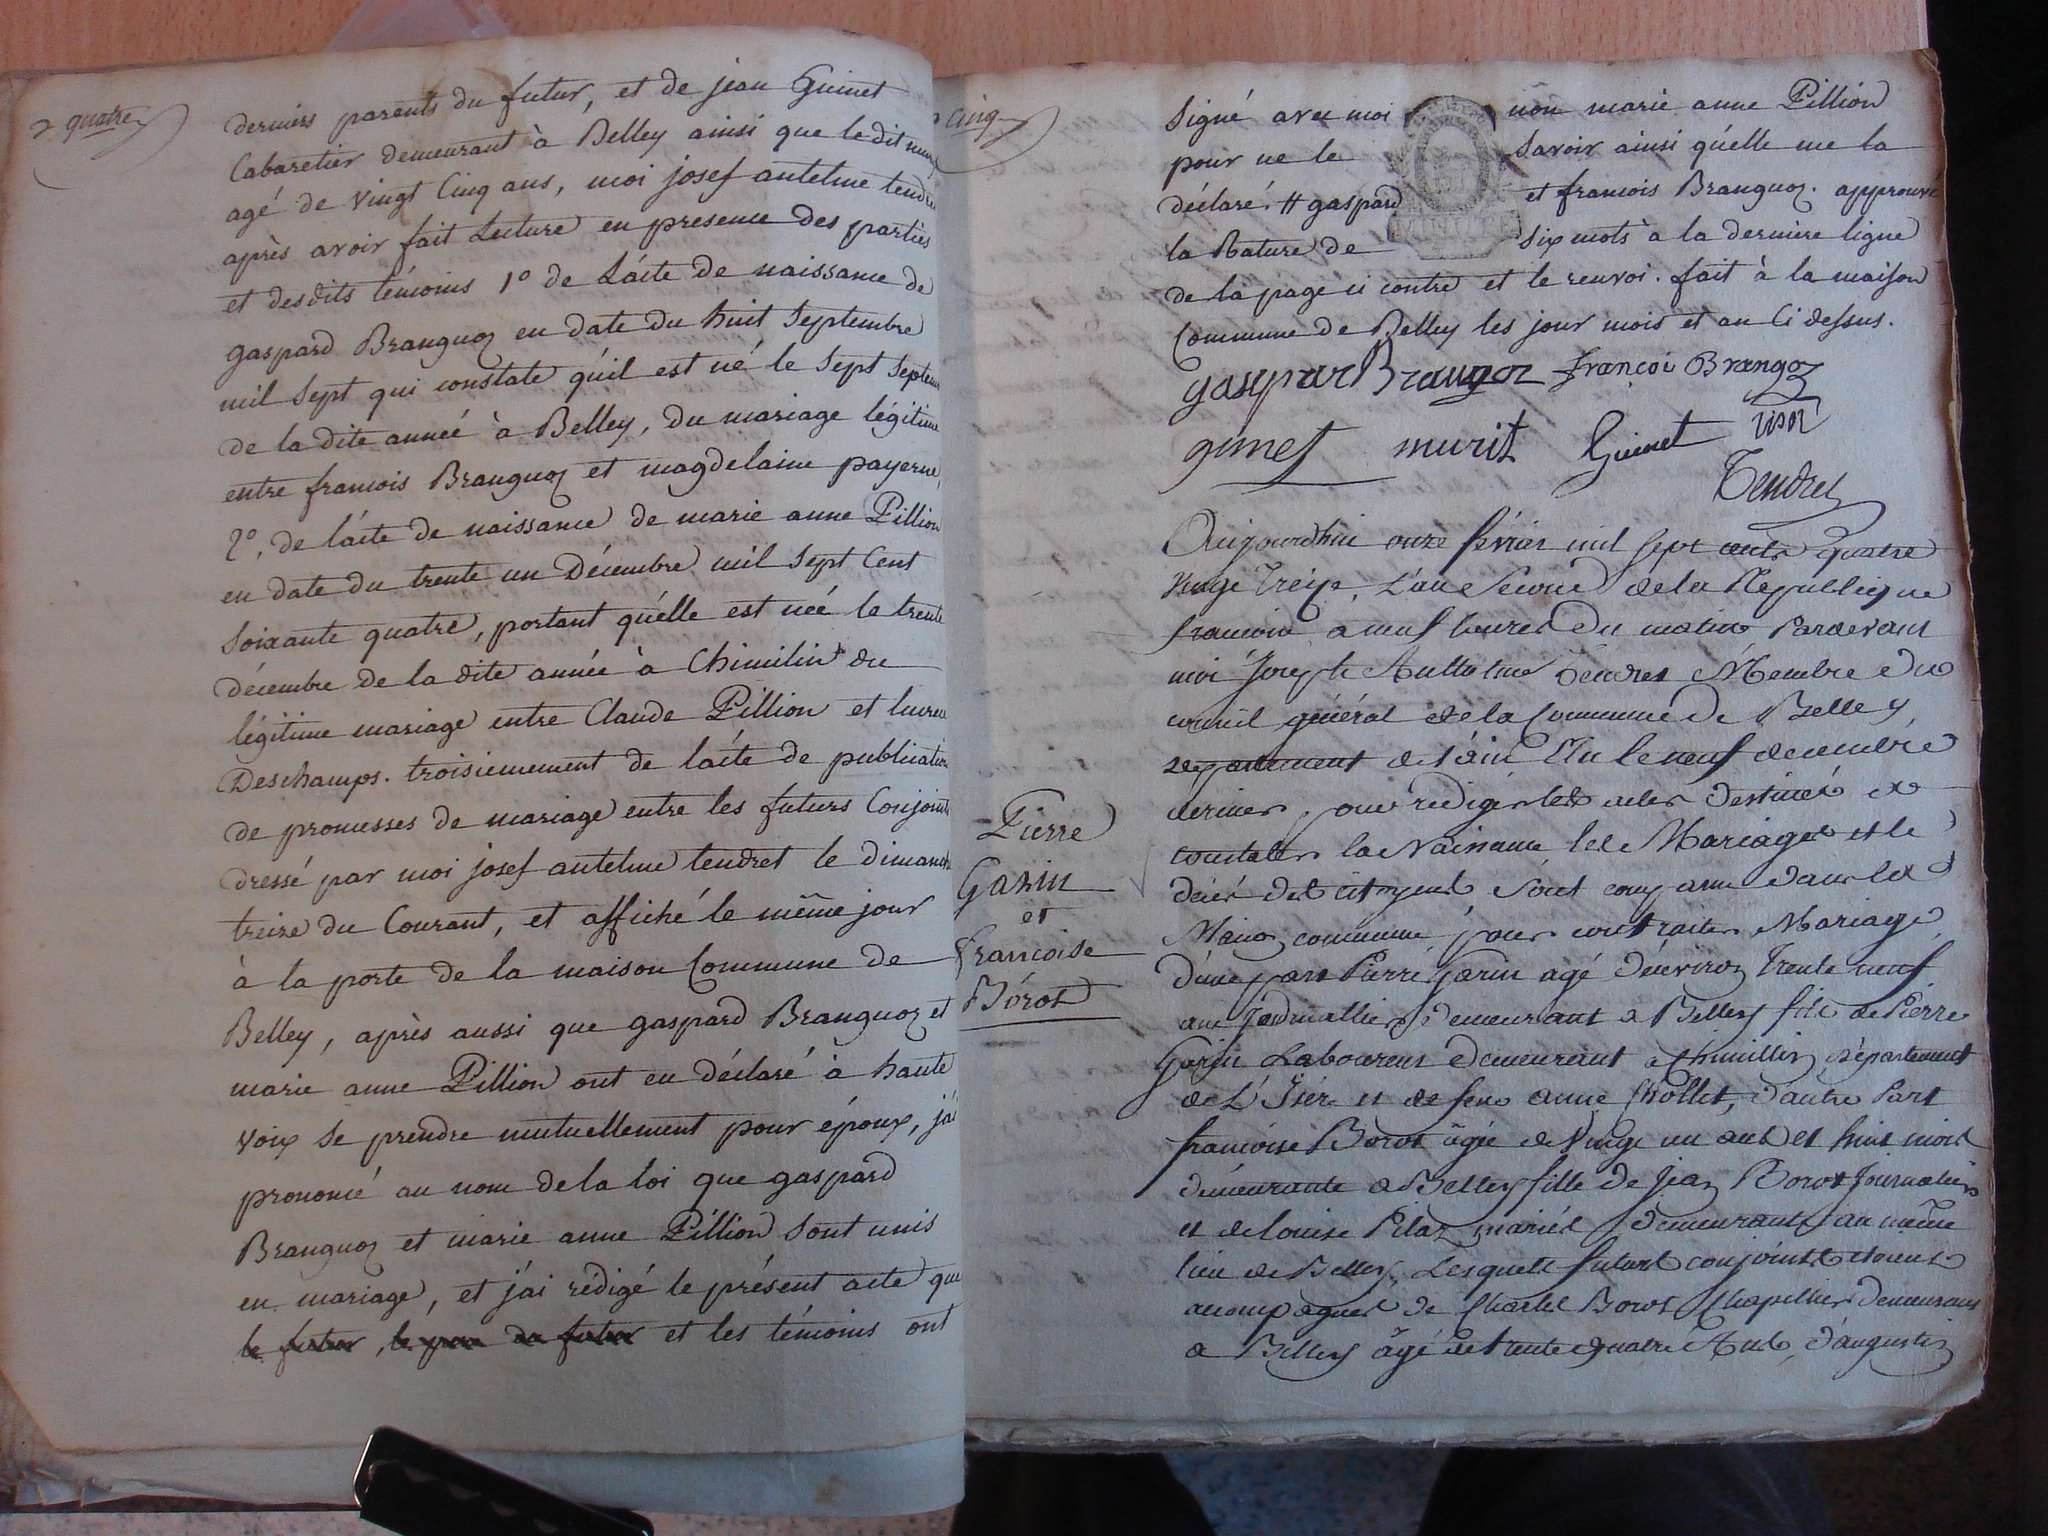 quatre
derniers parents du futur, et de jean Guinet
Cabaretier demeurant à Belley ainsi que ledit
agé de vingt Cinq ans, moi josef antelme tendret
après avoir fait Lecture en presence des parties
et desdits témoins 1° de L'acte de naissance de
gaspard Branguoz en date du huit Septembre
mil sept qui constate qu'il est né le sept Septem
de la dite année à Belley, du mariage légitime
entre francois Branguoz et magdelaine payerne,
2°, de l'acte de naissance de marie anne Pillion
en date du trente un Décembre mil sept Cent
soixante quatre, portant qu'elle est née le trente
décembre de la dite année à Chimilin du
légitime mariage entre Claude Pillion et
Deschamps. troisiemement de l'acte de publication
de promesses de mariage entre les futurs Conjoints
dressé par moi josef antelme tendret le dimanche
treize du Courant, et affiché le même jour
à la porte de la maison Commune de
Belley, après aussi que gaspard Branguoz et
marie anne Pillion ont eu déclaré à haute
voix se prendre mutuellement pour époux, j'ai
prononcé au nom de la loi que gaspard
Branguoz et marie anne Pillion sont unis
en mariage, et j'ai rédigé le présent acte que
le futur, le pere du futur et les témoins ont
Cinq
signé avec moi non marie anne Pillion
pour ne le savoir ainsi qu'elle me la
déclaré. # gaspard et francois Branguoz. approuvé
la Rature de six mots à la derniere ligne
de la page ci contre et le renvoi. fait à la maison
Commune de Belley les jour mois et an Ci dessus.
gaspar Brangoz françoi Brangoz
ginet murit Guinet
Tendret
Pierre
Garin
et
francoise
Borot
Aujourdhui onze février mil sept cents quatre
vingt Treize, L'an Second de la République
francoise a neuf heures du matin Pardevant
moi Joseph Anthelme Tendret Membre du
conseil général de la Commune de Belley
departement de l'ain Elu le neuf decembre
dernier, pour rediger les actes destinés a
constater la Naissance les Mariages et le
décés des citoyens, sont comparus dans la
Maison commune pour contracter Mariage,
d'une part Pierre Garin agé d'environ Trente neuf
ans Journallier demeurant a Belley fils de Pierre
Garin Laboureur demeurant a Chimillin, département
de L'Isère et de feue anne Chollet, d'autre Part
francoise Borot agée de Vingt un ans et huit mois
demeurante a Belley fille de Jean Borot Journalier
et de louise Pilaz mariés demeurants au même
lieu de Belley, Lesquels futurs conjoints etoient
accompagnés de Charles Borot Chapellier demeurant
a Belley âgé de trente quatre Ans, d'augustin